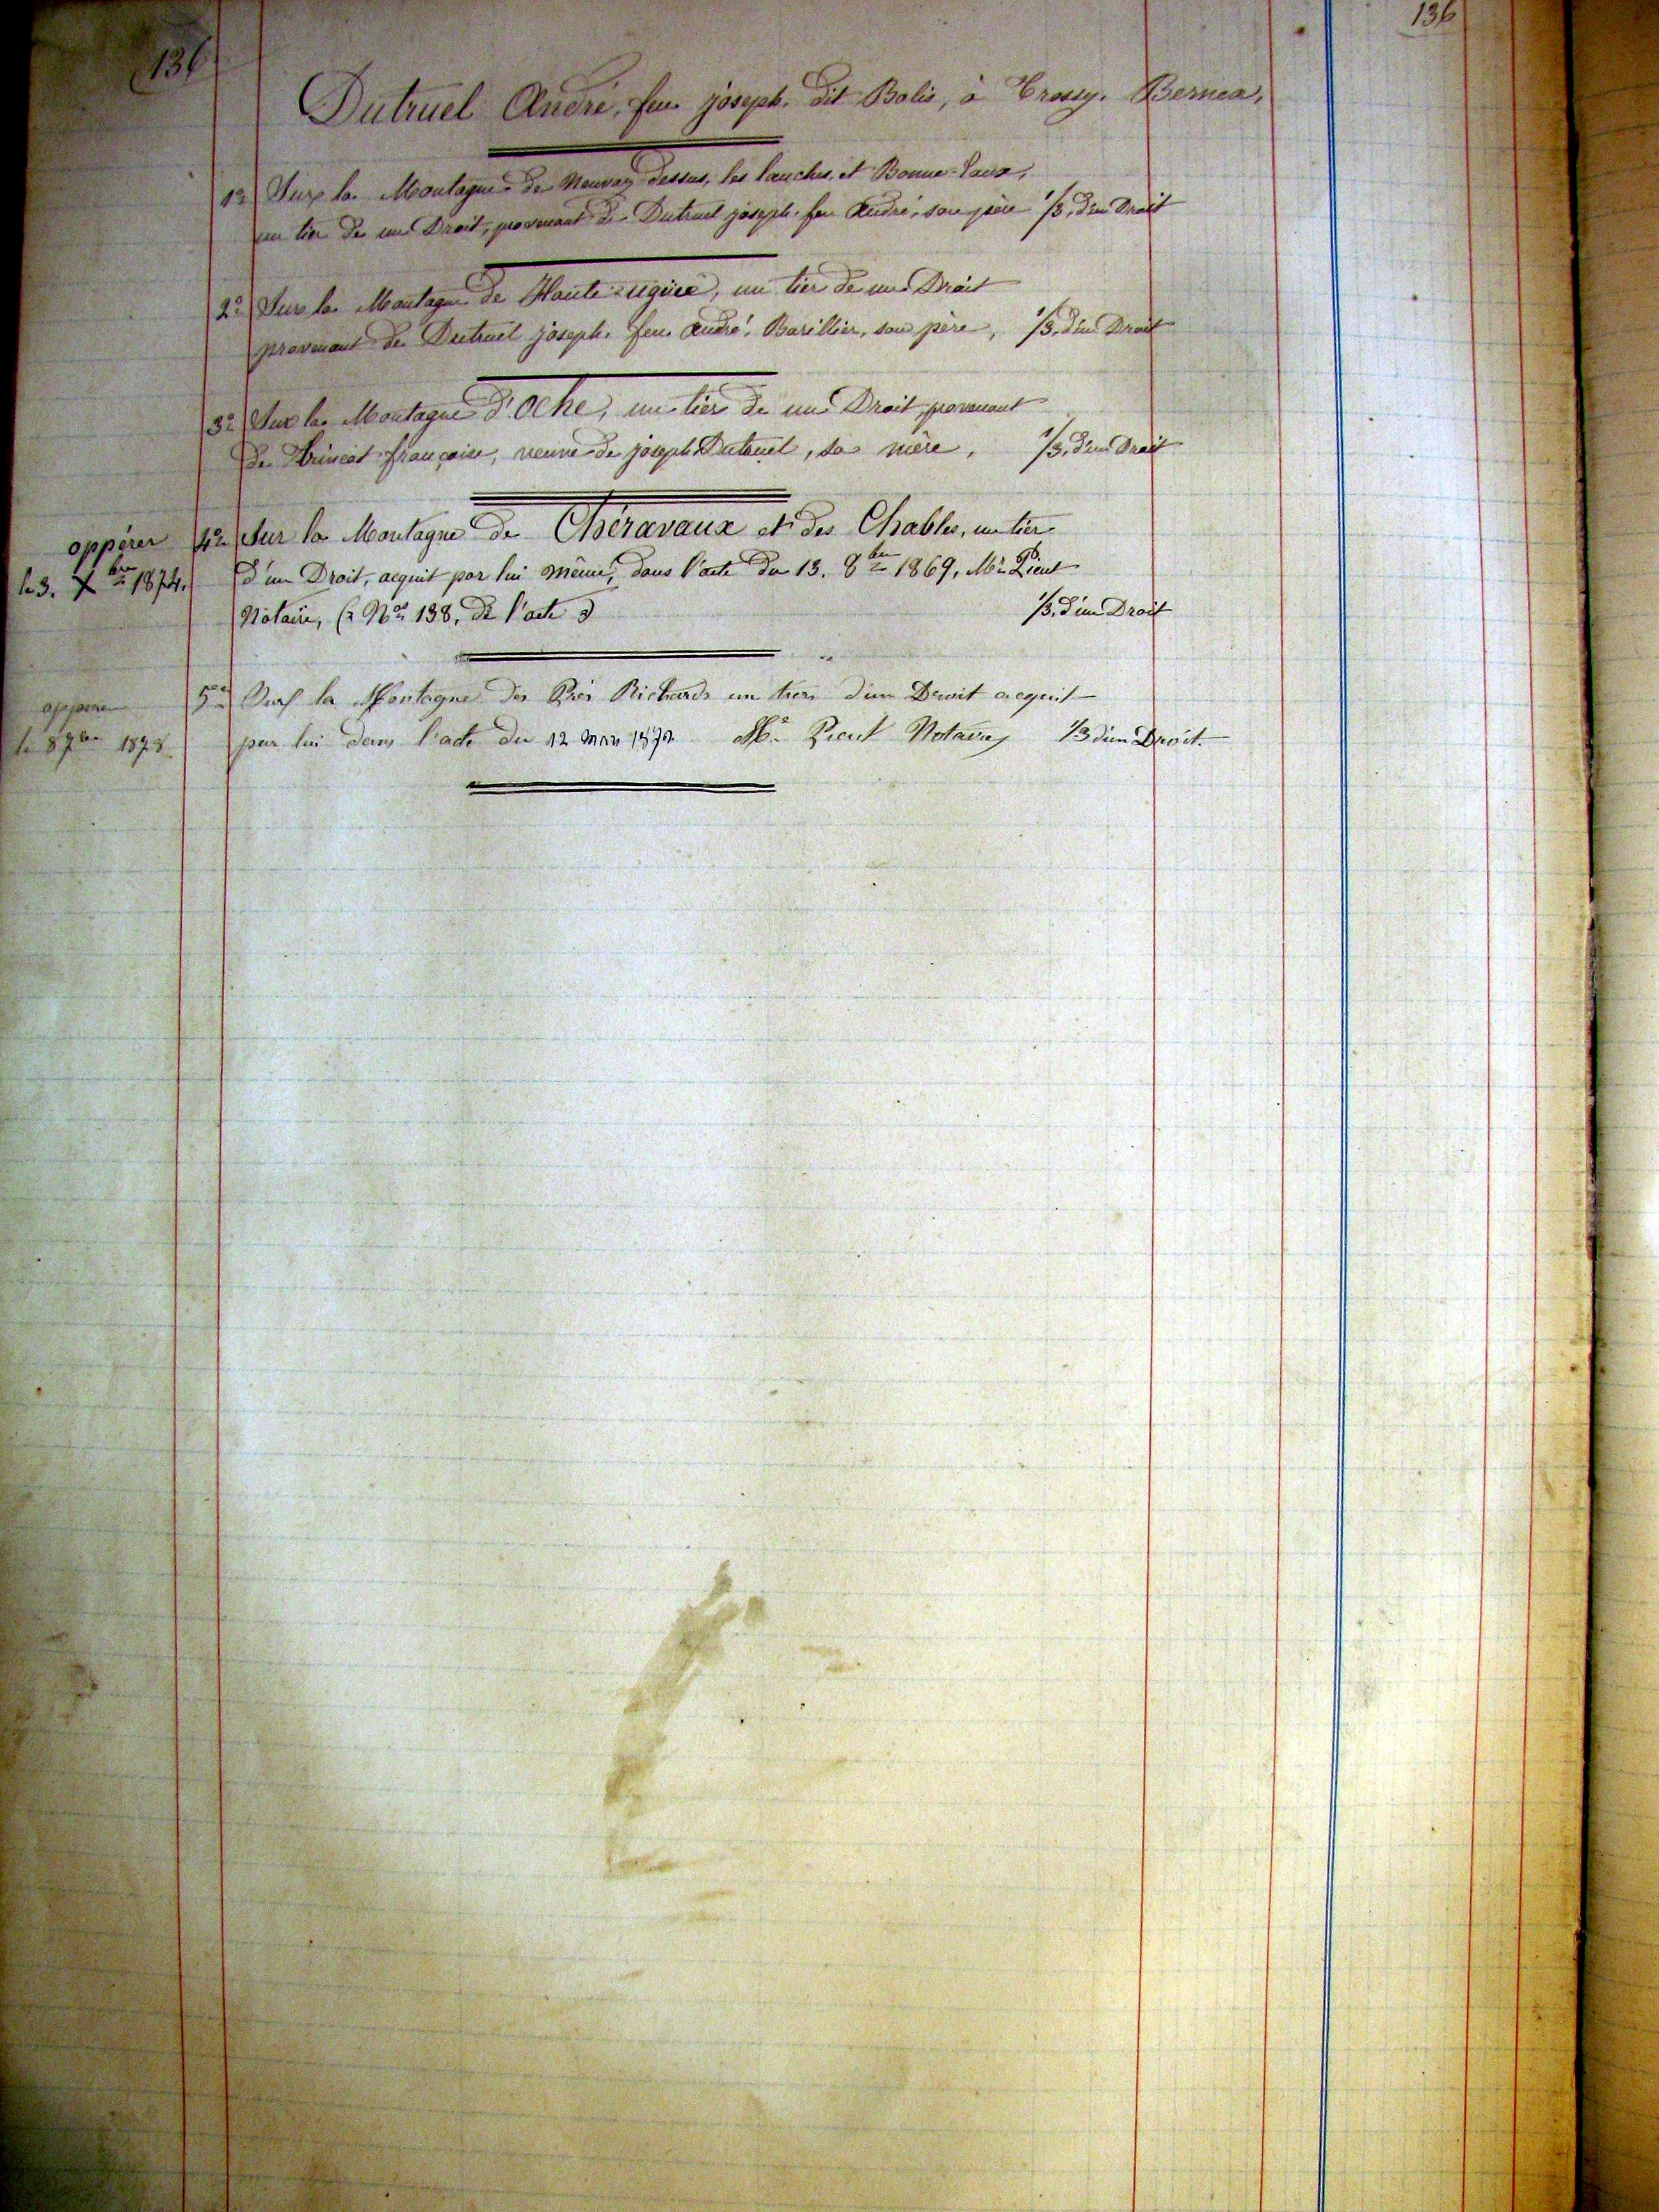 136
136
Dutruel André, feu joseph. dit Bolis, à Trossy. Bernex,
1º Sur la Montagne de Neuvaz dessus, les lanches, et Bonne-Eaux,
un tier de un Droit, provenant de Dutruel joseph. feu André, son père 1/3. d'un Droit
2º Sur la Montagne de Haute-ugine, un tier de un Droit
provenant de Dutruel joseph. feu André, Barillier, son père, 1/3. d'un Droit
3º Sur la Montagne d'Oche, un tier de un Droit, provenant
de françoise, veuve de joseph Dutruel, sa mère, 1/3. d'un Droit
oppérer 4º Sur la Montagne de Chéravaux et des Chables, un tier
le 3. Xbre 1874. d'un Droit, acquit par lui même, dans l'acte du 13. 8bre 1869, Me Pient
Notaire, (Nos 138, de l'acte) 1/3. d'un Droit
opperer 5º Sur la Montagne des Près Richards un tiers d'un Droit acquit
le 8 7bre 1878. par lui dans l'acte du 12 mars 1872 Me Pient Notaire, 1/3 d'un Droit.